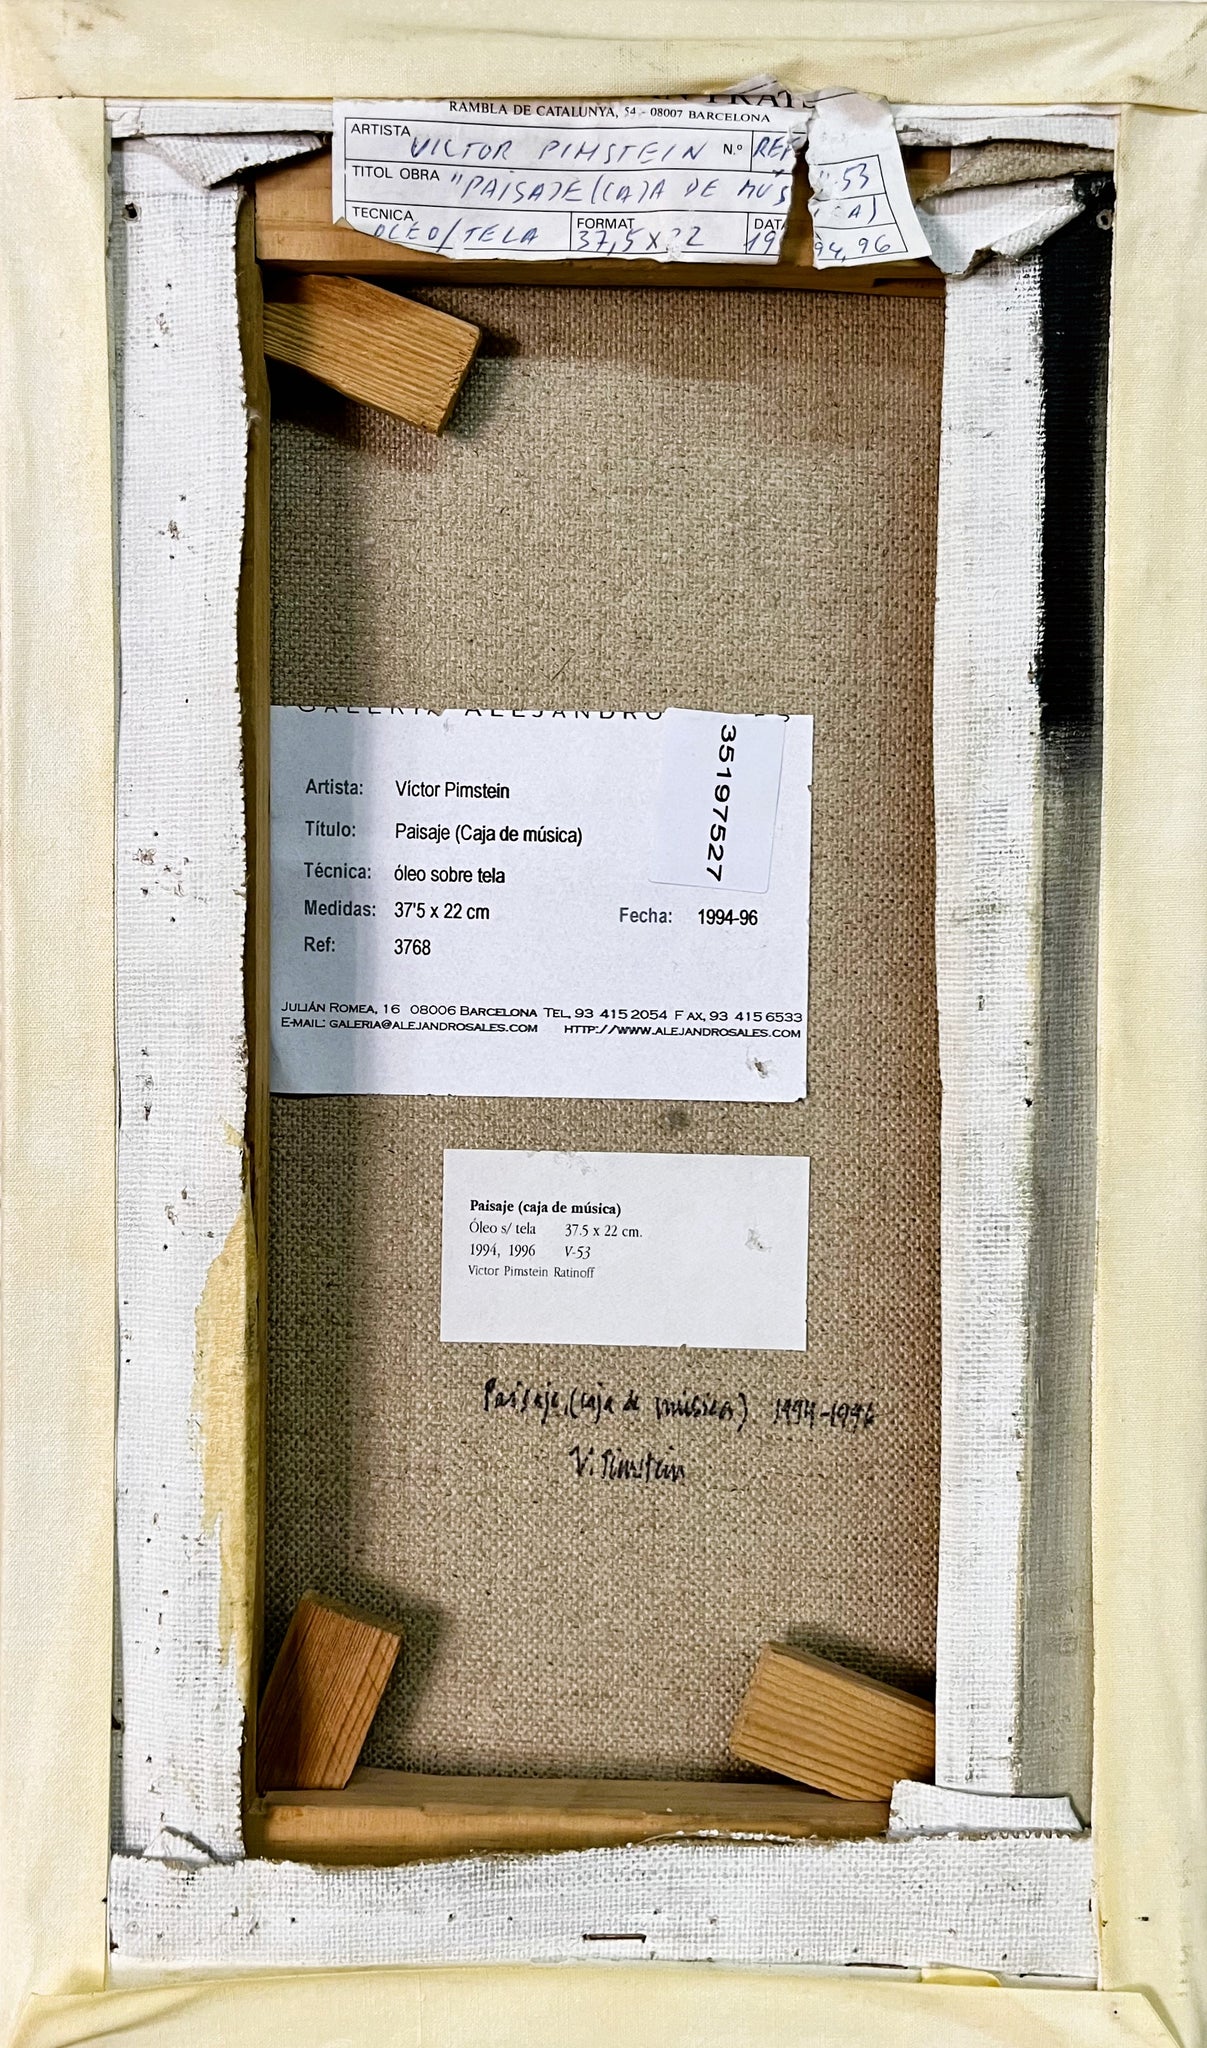 RAMBLA DE CATALUNYA, 54 - 08007 BARCELONA
ARTISTA VICTOR PIMSTEIN N.º REF V-53
TITOL OBRA "PAISAJE (CAJA DE MÚSICA)
TECNICA OLEO/TELA FORMAT 37,5 X 22 DATA 1994,96
GALERIA ALEJANDRO
35197527
Artista: Víctor Pimstein
Título: Paisaje (Caja de música)
Técnica: óleo sobre tela
Medidas: 37'5 x 22 cm Fecha: 1994-96
Ref: 3768
JULIÁN ROMEA, 16 08006 BARCELONA TEL, 93 415 2054 FAX, 93 415 6533
E-MAIL: GALERIA@ALEJANDROSALES.COM HTTP://WWW.ALEJANDROSALES.COM
Paisaje (caja de música)
Óleo s/ tela 37.5 x 22 cm.
1994, 1996 V-53
Victor Pimstein Ratinoff
Paisaje (caja de música) 1994-1996
V. Pimstein